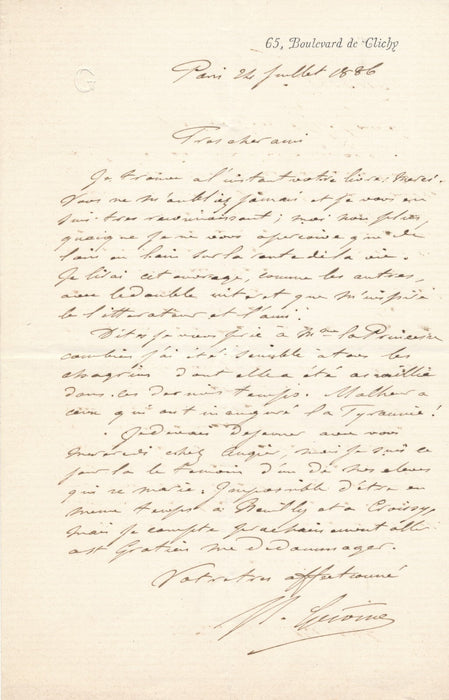 65, Boulevard de Clichy
G
Paris 24 juillet 1886
Tres cher ami
Je trouve a l'instant votre livre: Merci.
Vous ne m'oubliez jamais et je vous en
suis tres reconnaissant; moi non plus,
quoique je ne vous aperçoive que de
loin en loin sur la route de la vie.
Je lirai cet ouvrage, comme les autres,
avec le double interet que m'inspire
le litterateur et l'ami.
Dites je vous prie à Mme la Princesse
combien j'ai été sensible a tous les
chagrins dont elle a été assaillie
dans ces derniers temps. Malheur a
ceux qui ont inauguré la Tyrannie!
Je devais dejeuner avec vous
mercredi chez Augier, mais je suis ce
jour la le temoin d'un de nos eleves
qui se marie. Impossible d'être en
meme temps à Neuilly et a Croissy
mais je compte prochainement aller
a St Gratien me dedommager.
Votre tres affectionné
Gerome